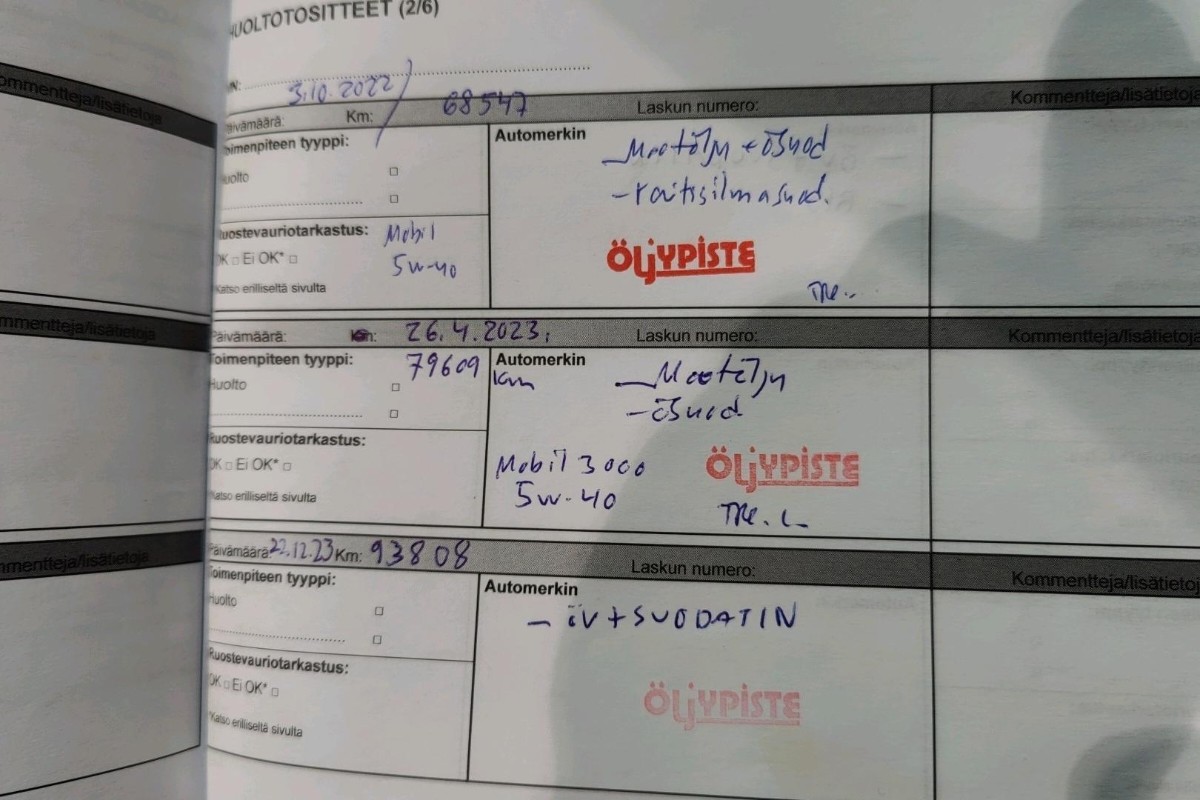 HUOLTOTOSITTEET (2/6)
VIN:
3.10.2022 / 68547
Päivämäärä: Km: Laskun numero: Kommentteja/lisätietoja
Toimenpiteen tyyppi: Automerkin
- Moottöljy + ösuod
Huolto □
- raitisilmasuod.
□
Ruostevauriotarkastus: Mobil
OK □ Ei OK* □ 5W-40
ÖLJYPISTE
*Katso erilliseltä sivulta
TRE.
Päivämäärä: Km: 26.4.2023. Laskun numero: Kommentteja/lisätietoja
Toimenpiteen tyyppi: 79609 km Automerkin
- Moottöljy
Huolto □
- ösuod
□
Ruostevauriotarkastus:
OK □ Ei OK* □
Mobil 3000
5W-40
ÖLJYPISTE
*Katso erilliseltä sivulta
TRE.
Päivämäärä: 22.12.23 Km: 93808 Laskun numero: Kommentteja/lisätietoja
Toimenpiteen tyyppi: Automerkin
- ÖV + SUODATIN
Huolto □
□
Ruostevauriotarkastus:
OK □ Ei OK* □
ÖLJYPISTE
*Katso erilliseltä sivulta
Kommentteja/lisätietoja
Kommentteja/lisätietoja
Kommentteja/lisätietoja